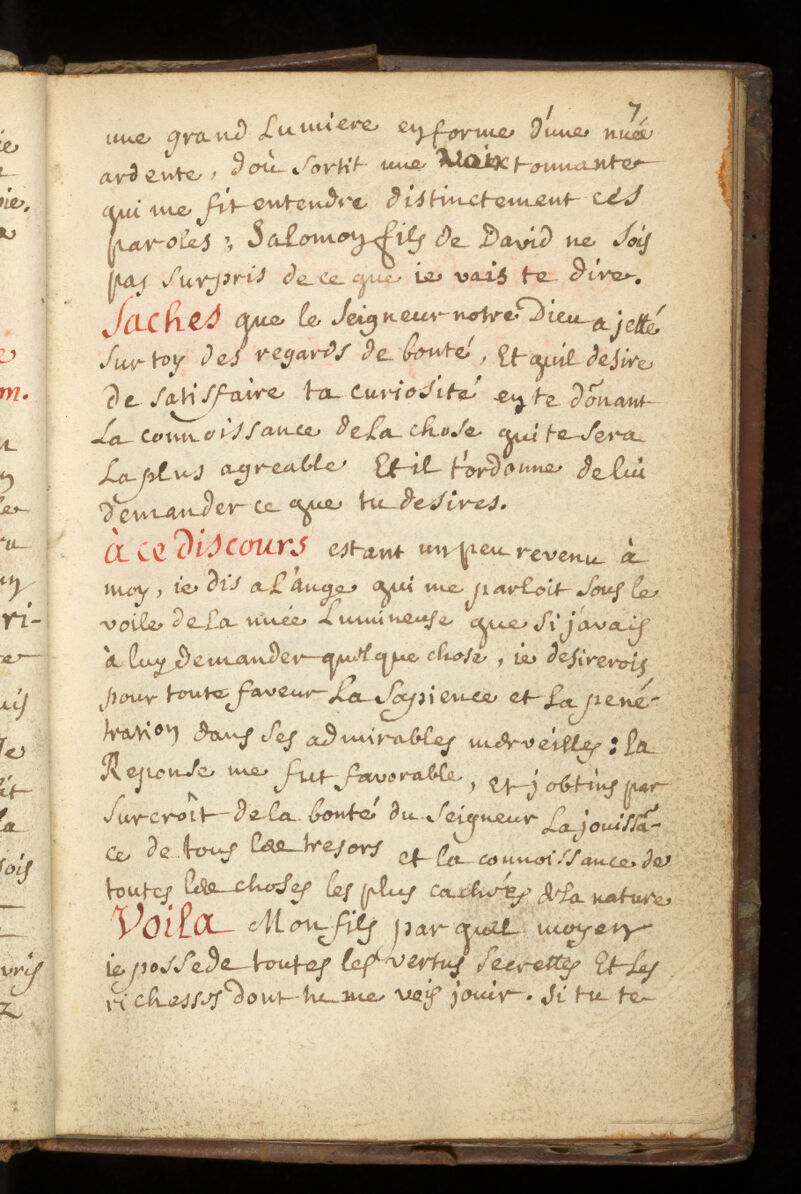 7
une grand Lumiere en forme d'une nuéé
ardente, d'où sortit une Voix tonnante
qui me fit entendre distinctement ces
paroles ; Salomon fils de David ne sois
pas surpris de ce que ie vais te dire.
Saches que le seigneur notre Dieu a jetté
sur toy des regards de bonté, Et qu'il desire
de satisfaire ta curiosité en te don̄ant
La connoissance de la chose qui te sera
La plus agreable Et il t'ordonne de lui
demander ce que tu desires.
à ce Discours estant un peu revenu à
moy, ie dis a L'ange qui me parloit sous le
voile de la nuée Lumineuse que si j'avais
à luy demander quelque chose, ie desirerois
pour toute faveur La Sapience et La pené-
tration dans ses admirables merveilles : la
Reponse me fut favorable, et j'obtins par
surcroît de la bonté du seigneur La jouissā-
ce de tous les tresors et la connoissance de
toutes les choses les plus cachées de la nature
Voila Mon fils par quel moyen
ie possede toutes les vertus secrettes Et Les
richesses dont tu me vois jouir. si tu te